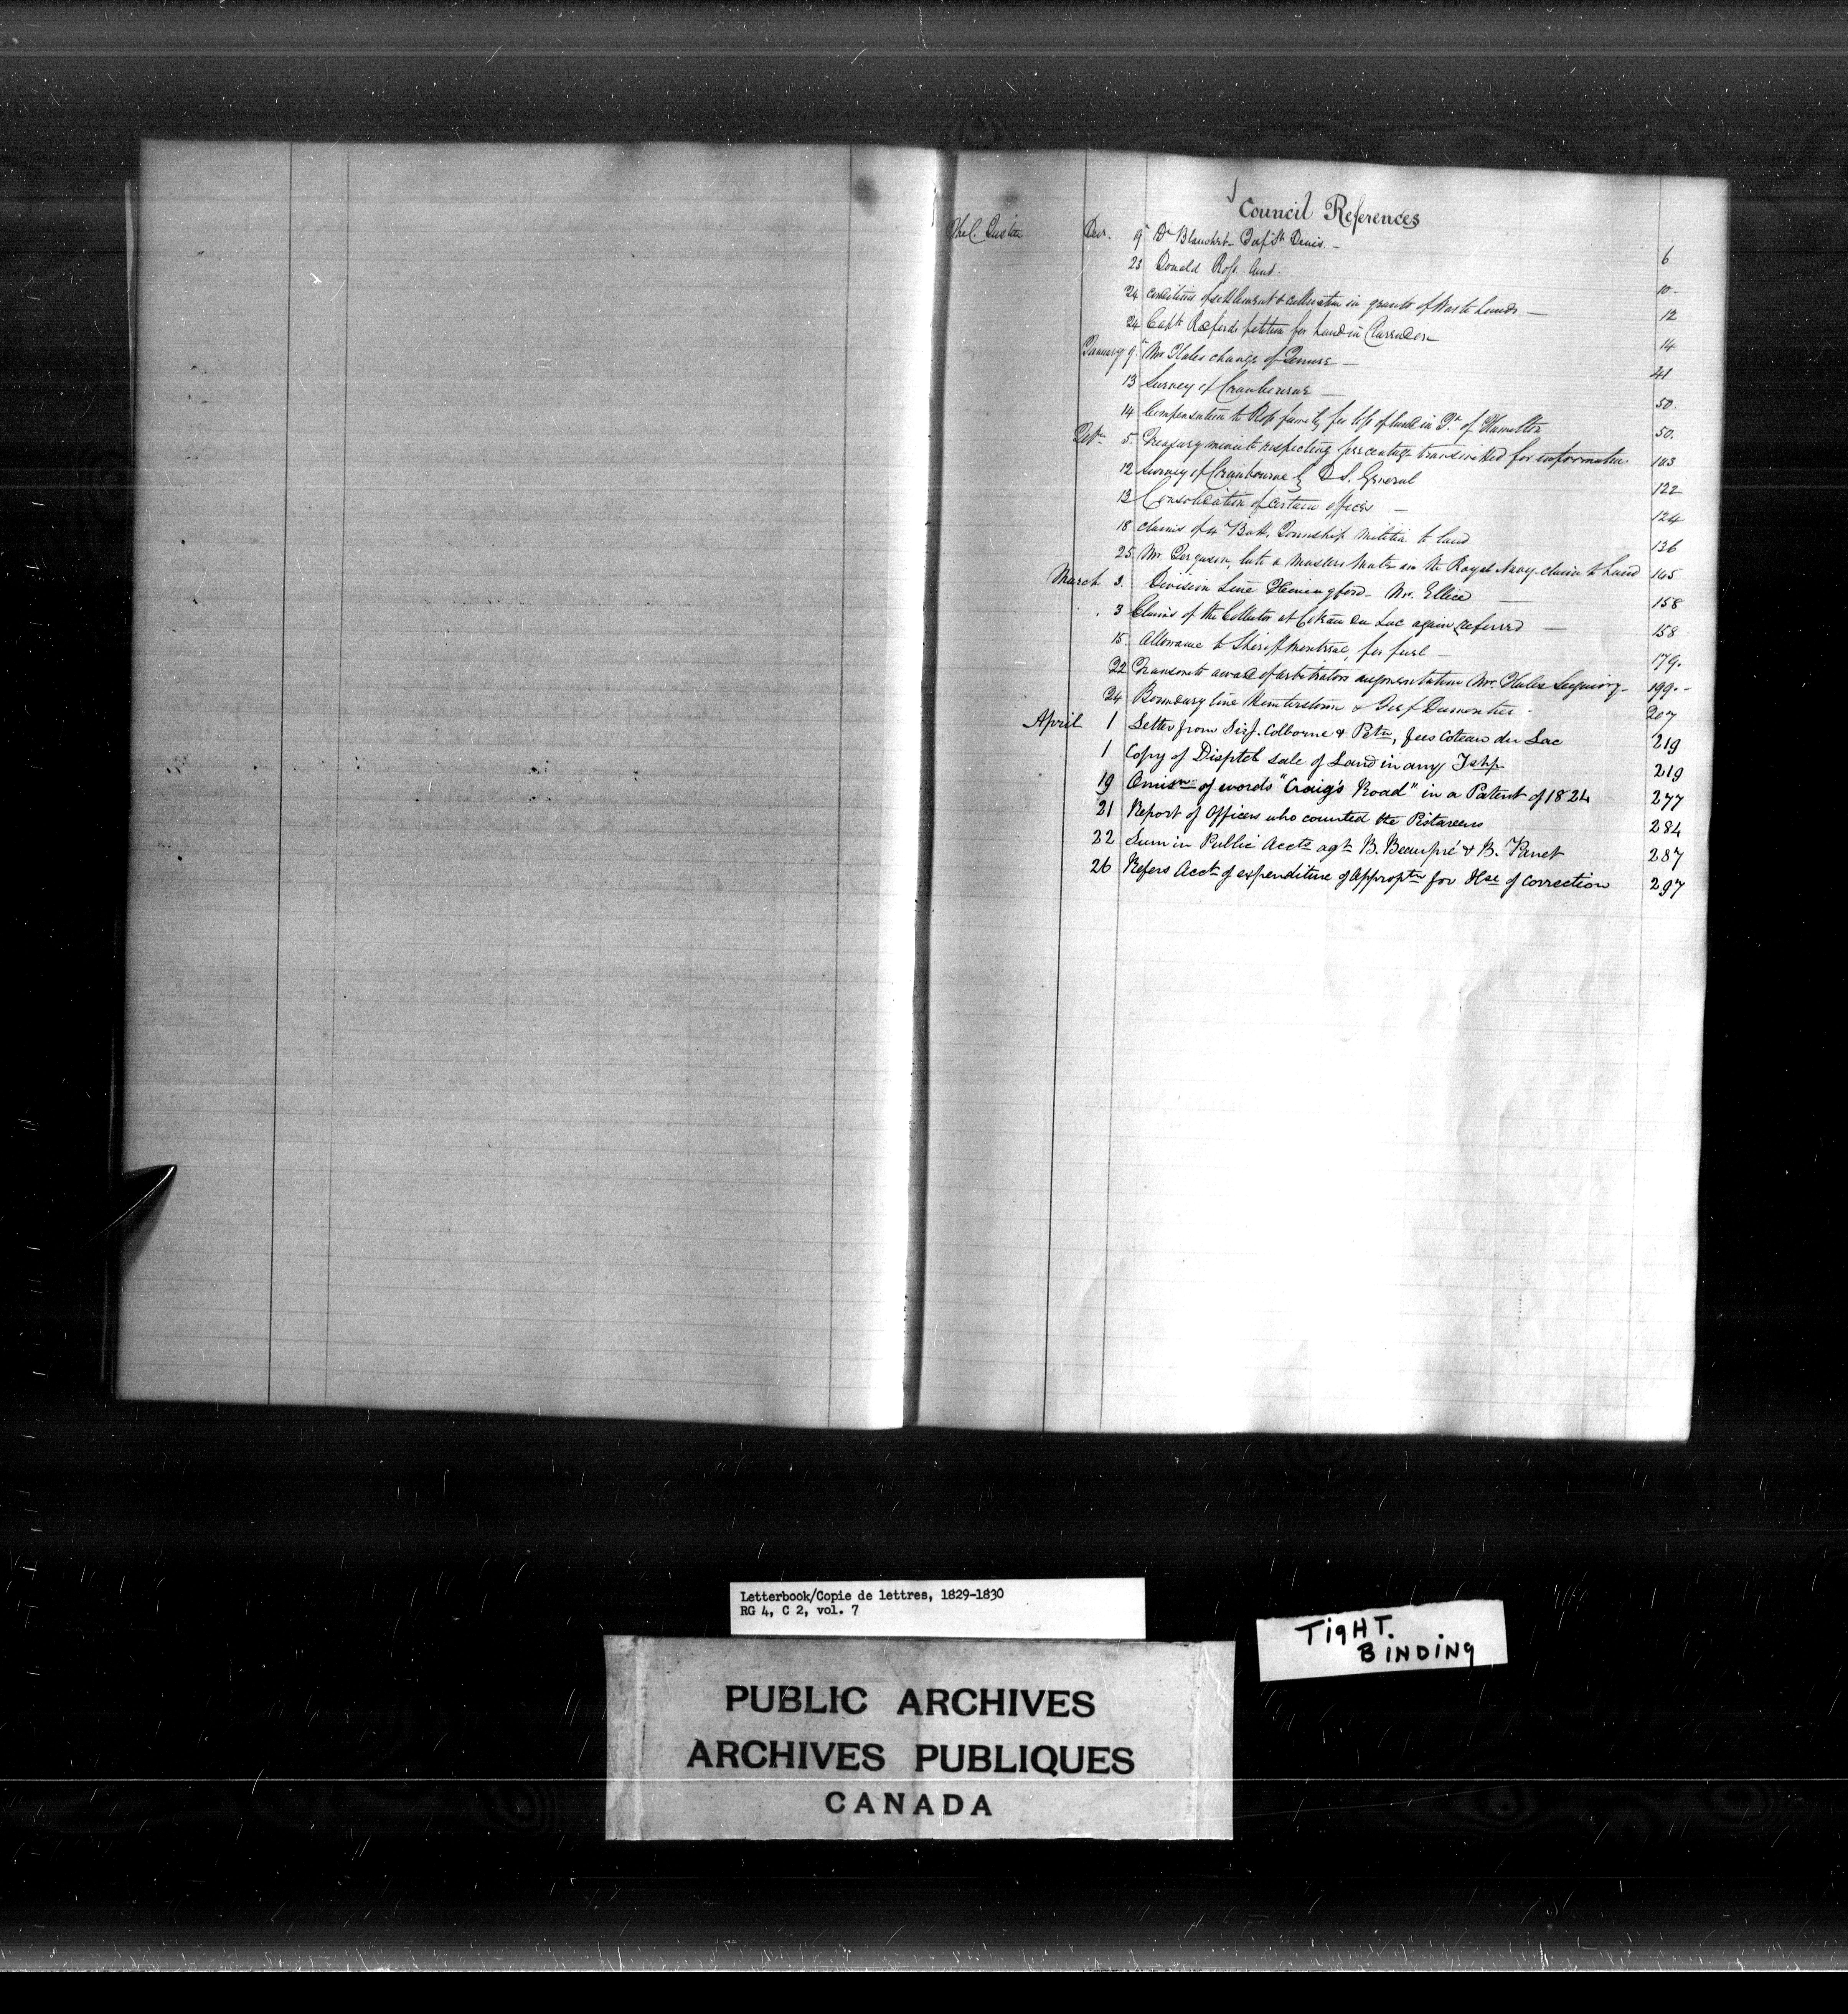 Council References
Decr. 9 Dr Blanchet St Denis - 6
23 Donald Ross land. 10
24 Conditions of settlement & cultivation in grants of Waste Lands — 12
24 Captn petition for Land in Clarendon 14
January 9 Mr Hales change of Tenure — 41
13 Survey of Cranbourne — 50.
14 Compensation to Ross family for loss of land in of Hamilton 50.
5. Treasury minute respecting percentage transmitted for information 103
12 Survey of Cranbourne by D S. General 122
13 Consolidation of certain offices — 124
18 claims of 4 Batt. Township Militia to land 136
25 Mr Ferguson, late a Masters Mate in the Royal Navy claim to Land 145
March 3. Division Line Hemingford - Mr. Ellice — 158
3 Claims of the Collector at Coteau du Lac again referred — 158
15 Allowance to Sheriff Montreal, for fuel — 179.
22 Transmits award of arbitrators augmentation Mr. Hales 199.-
24 Boundary line & 207
April 1 Letter from Sir J. Colborne & Petn, fees Coteau du Lac 219
1 Copy of Disptch sale of Land in any Tshp 219
19 Omisn of words "Craig's Road" in a Patent of 1824 277
21 Report of Officers who counted the Pistareens 284
22 Sum in Public Accts agt B. Beaupré & B. Panet 287
26 Refers Acct of expenditure of Appropn for Hse of Correction 297
Letterbook/Copie de lettres, 1829-1830
RG 4, C 2, vol. 7
TIGHT.
BINDING
PUBLIC ARCHIVES
ARCHIVES PUBLIQUES
CANADA